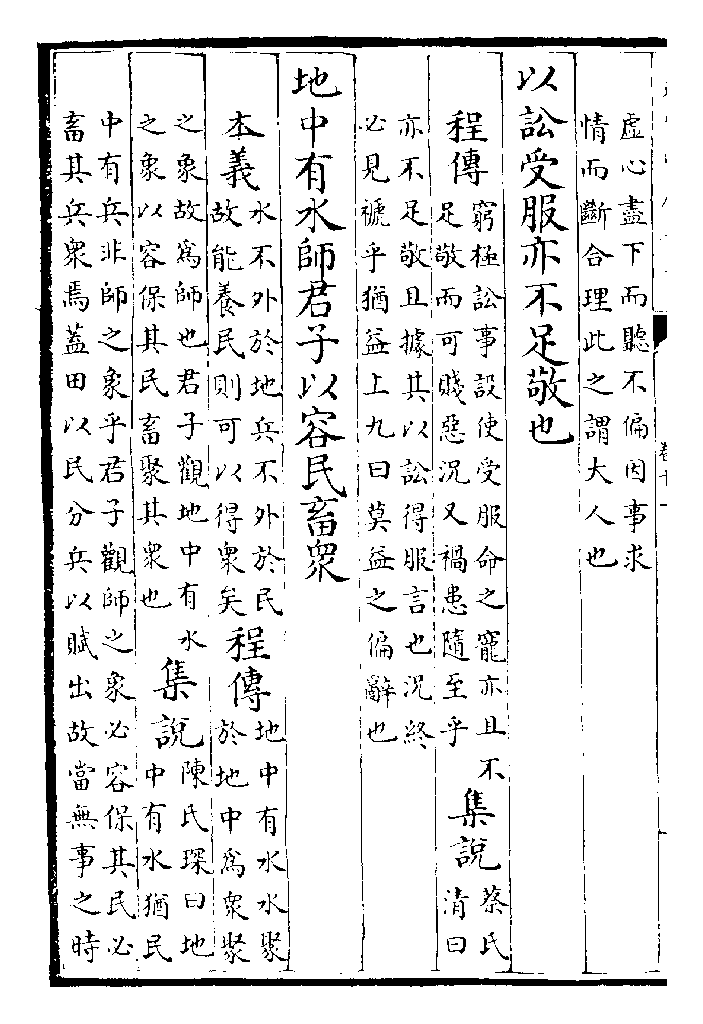 虛心盡下而聽不偏因事求
情而斷合理此之謂大人也
以訟受服亦不足敬也
程傳
窮極訟事設使受服命之寵亦且不
足敬而可賤惡況又禍患隨至乎
集說
蔡氏
清曰
亦不足敬且據其以訟得服言也況終
必見褫乎猶益上九曰莫益之偏辭也
地中有水師君子以容民畜衆
本義
水不外於地兵不外於民
故能養民則可以得衆矣
程傳
地中有水水聚
於地中爲衆聚
之象故爲師也君子觀地中有水
之象以容保其民畜聚其衆也
集說
陳氏琛曰地
中有水猶民
中有兵非師之象乎君子觀師之象必容保其民必
畜其兵衆焉蓋田以民分兵以賦出故當無事之時